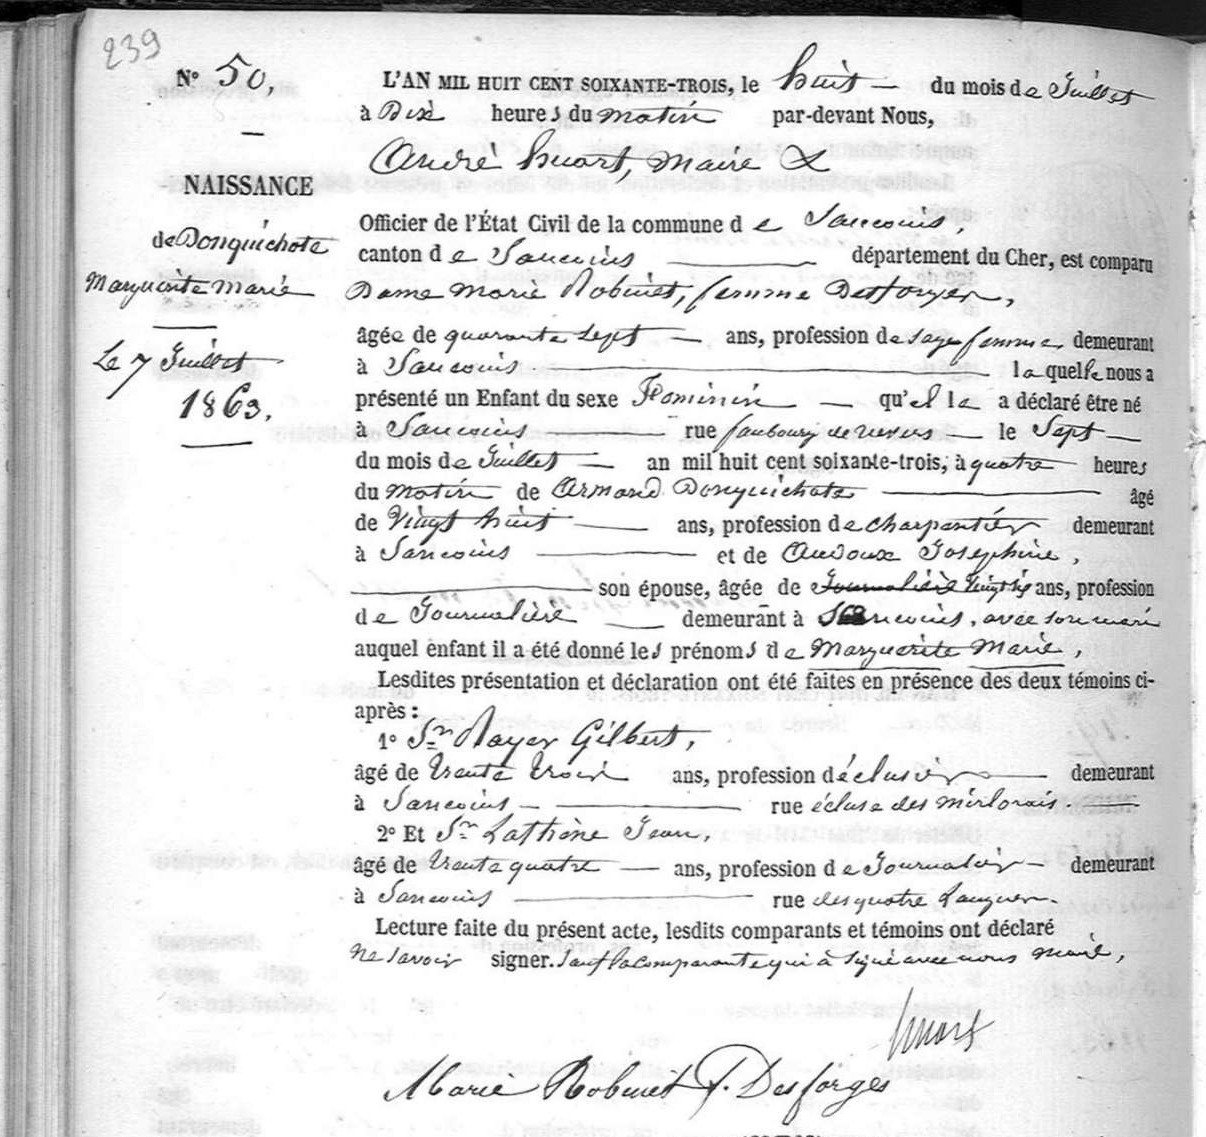 239
N° 50,
L'AN MIL HUIT CENT SOIXANTE-TROIS, le huit du mois de Juillet
à Dix heures du matin par-devant Nous,
André huart, Maire
NAISSANCE
de Donquichote
Marguerite Marie
Le 7 Juillet
1863.
Officier de l'État Civil de la commune de Sancoins,
canton de Sancoins département du Cher, est comparu
Dame Marie Robinet, femme Desforges,
âgée de quarante sept ans, profession de sage femme, demeurant
à Sancoins laquelle nous a
présenté un Enfant du sexe Féminin qu'elle a déclaré être né
à Sancoins rue faubourg de nevers le Sept
du mois de Juillet an mil huit cent soixante-trois, à quatre heures
du matin de Armand Donquichote âgé
de Vingt huit ans, profession de charpentier demeurant
à Sancoins et de Audoux Joséphine,
son épouse, âgée de Journalière Vingt six ans, profession
de Journalière demeurant à Sancoins, avec son mari
auquel enfant il a été donné les prénoms de Marguerite Marie,
Lesdites présentation et déclaration ont été faites en présence des deux témoins ci-
après :
1° Sr Gilbert,
âgé de trente trois ans, profession d'éclusier demeurant
à Sancoins rue écluse des
2° Et Sr Lathène Jean,
âgé de trente quatre ans, profession de Journalier demeurant
à Sancoins rue des quatre
Lecture faite du présent acte, lesdits comparants et témoins ont déclaré
ne savoir signer. Sauf la comparante qui a signé avec nous maire,
huart
Marie Robinet f. Desforges